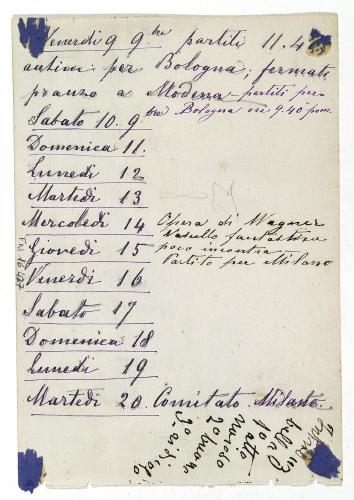 Venerdì 9 9bre partiti 11.4
antim: per Bologna; fermati
pranzo a Modena partiti per
Bologna ore 9.40 pom.
Sabato 10. 9bre
Domenica 11.
Lunedì 12
Martedì 13
Mercoledì 14 Opera di Wagner
Vascello fantastico
poco incontra
Giovedì 15 Partito per Milano
Venerdì 16
Sabato 17
Domenica 18
Lunedì 19
Martedì 20. Comitato. Milano.
bella
1o atto
noioso
2o buono
3o